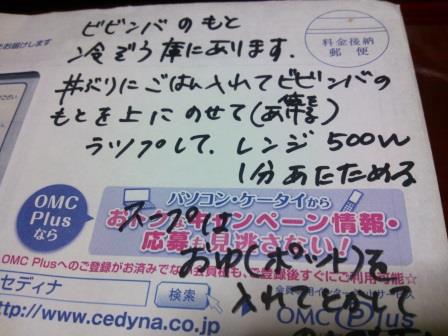 お届けします
料金後納
郵便
ビビンバのもと
冷ぞう庫にあります.
丼ぶりにごはん入れてビビンバの
もとを上にのせて
ラップして.レンジ500W
1分あたためる
OMC
Plus
なら
パソコン・ケータイから
キャンペーン情報・
応募も見逃さない!
スープは
おゆ(ポット)を
入れてとかして
OMC Plusへのご登録がお済みでない会員様も、ご登録後すぐにご利用可能☆
セディナ
検索
http://www.cedyna.co.jp
OMC Plus